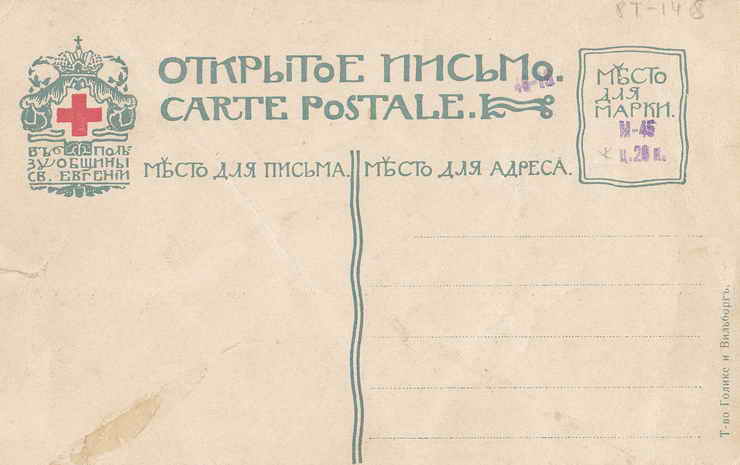 8Т-148
ОТКРЫТОЕ ПИСЬМО.
CARTE POSTALE.
ВЪ ПОЛЬ
ЗУ ОБЩИНЫ
СВ. ЕВГЕНІИ
МѢСТО ДЛЯ ПИСЬМА.
МѢСТО ДЛЯ АДРЕСА.
МѢСТО
ДЛЯ
МАРКИ.
М-46
ц. 20 к.
Т-во Голике и Вильборгъ.